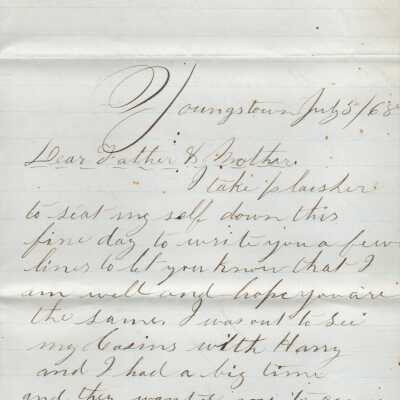 Youngstown July 5/68
Dear Father & Mother
I take plaesher
to seat my self down this
fine day to write you a few
lines to let you know that I
am well and hope you are
the same. I was out to see
my Cosins with Harry
and I had a big time
and they wanted me to